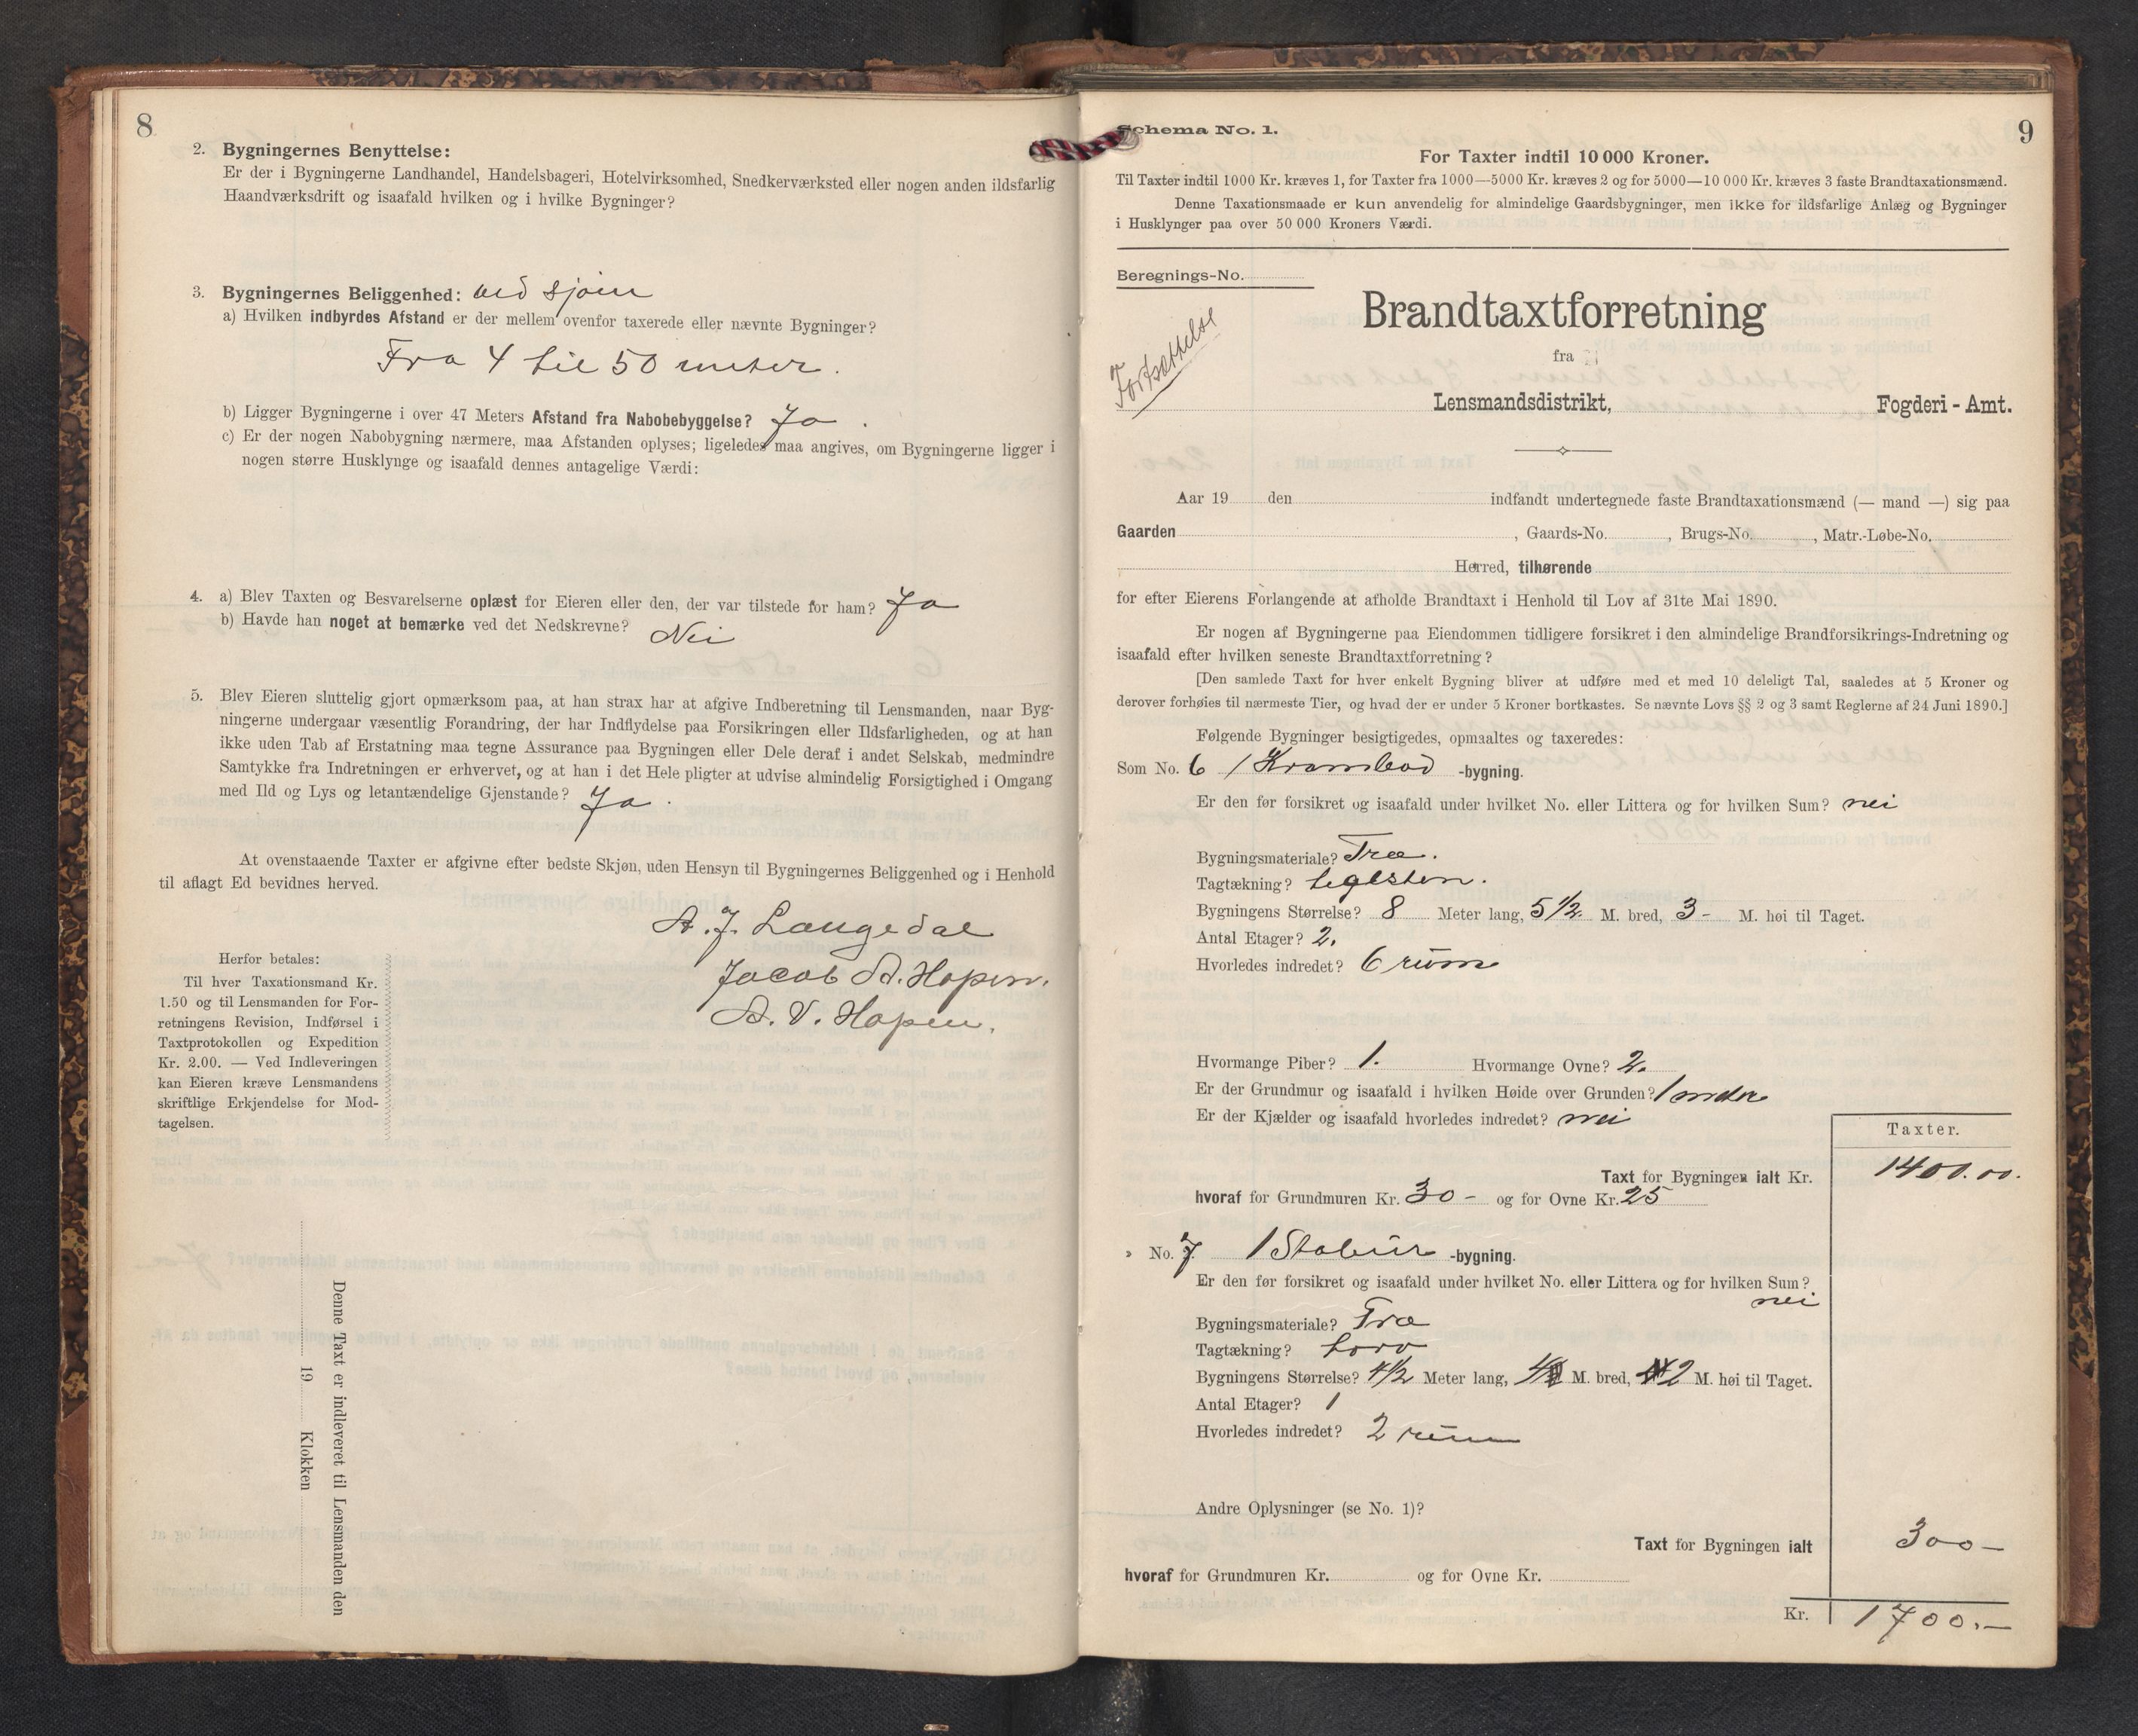 8
2. Bygningernes Benyttelse:
Er der i Bygningerne Landhandel, Handelsbageri, Hotelvirksomhed, Snedkerværksted eller nogen anden ildsfarlig
Haandværksdrift og isaafald hvilken og i hvilke Bygninger?
3. Bygningernes Beliggenhed: ved sjøen
a) Hvilken indbyrdes Afstand er der mellem ovenfor taxerede eller nævnte Bygninger?
Fra 4 til 50 meter.
b) Ligger Bygningerne i over 47 Meters Afstand fra Nabobebyggelse? Ja.
c) Er der nogen Nabobygning nærmere, maa Afstanden oplyses; ligeledes maa angives, om Bygningerne ligger i
nogen større Husklynge og isaafald dennes antagelige Værdi:
4. a) Blev Taxten og Besvarelserne oplæst for Eieren eller den, der var tilstede for ham? Ja
b) Havde han noget at bemærke ved det Nedskrevne? Nei
5. Blev Eieren sluttelig gjort opmærksom paa, at han strax har at afgive Indberetning til Lensmanden, naar Byg-
ningerne undergaar væsentlig Forandring, der har Indflydelse paa Forsikringen eller Ildsfarligheden, og at han
ikke uden Tab af Erstatning maa tegne Assurance paa Bygningen eller Dele deraf i andet Selskab, medmindre
Samtykke fra Indretningen er erhvervet, og at han i det Hele pligter at udvise almindelig Forsigtighed i Omgang
med Ild og Lys og letantændelige Gjenstande? Ja.
At ovenstaaende Taxter er afgivne efter bedste Skjøn, uden Hensyn til Bygningernes Beliggenhed og i Henhold
til aflagt Ed bevidnes herved.
A. J. Langedal
Jacob A. Hopen.
A. V. Hopen.
Herfor betales:
Til hver Taxationsmand Kr.
1.50 og til Lensmanden for For-
retningens Revision, Indførsel i
Taxtprotokollen og Expedition
Kr. 2.00. — Ved Indleveringen
kan Eieren kræve Lensmandens
skriftlige Erkjendelse for Mod-
tagelsen.
Denne Taxt er indleveret til Lensmanden den
19 Klokken
9
Schema No. 1.
For Taxter indtil 10 000 Kroner.
Til Taxter indtil 1000 Kr. kræves 1, for Taxter fra 1000—5000 Kr. kræves 2 og for 5000—10 000 Kr. kræves 3 faste Brandtaxationsmænd.
Denne Taxationsmaade er kun anvendelig for almindelige Gaardsbygninger, men ikke for ildsfarlige Anlæg og Bygninger
i Husklynger paa over 50 000 Kroners Værdi.
Beregnings-No.
Fortsættelse
Brandtaxtforretning
fra
Lensmandsdistrikt, Fogderi - Amt.
Aar 19 den indfandt undertegnede faste Brandtaxationsmænd (— mand —) sig paa
Gaarden , Gaards-No. , Brugs-No. , Matr.-Løbe-No.
Herred, tilhørende
for efter Eierens Forlangende at afholde Brandtaxt i Henhold til Lov af 31te Mai 1890.
Er nogen af Bygningerne paa Eiendommen tidligere forsikret i den almindelige Brandforsikrings-Indretning og
isaafald efter hvilken seneste Brandtaxtforretning?
[Den samlede Taxt for hver enkelt Bygning bliver at udføre med et med 10 deleligt Tal, saaledes at 5 Kroner og
derover forhøies til nærmeste Tier, og hvad der er under 5 Kroner bortkastes. Se nævnte Lovs §§ 2 og 3 samt Reglerne af 24 Juni 1890.]
Følgende Bygninger besigtigedes, opmaaltes og taxeredes:
Som No. 6 1 Krambod -bygning.
Er den før forsikret og isaafald under hvilket No. eller Littera og for hvilken Sum? nei
Bygningsmateriale? Træ.
Tagtækning? teglsten.
Bygningens Størrelse? 8 Meter lang, 5 1/2 M. bred, 3 - M. høi til Taget.
Antal Etager? 2.
Hvorledes indredet? 6 rum
Hvormange Piber? 1. Hvormange Ovne? 2.
Er der Grundmur og isaafald i hvilken Høide over Grunden? 1 meter
Er der Kjælder og isaafald hvorledes indredet? nei
Taxter.
Taxt for Bygningen ialt Kr. 1400.00.
hvoraf for Grundmuren Kr. 30 - og for Ovne Kr. 25
» No. 7. 1 Stabur -bygning.
Er den før forsikret og isaafald under hvilket No. eller Littera og for hvilken Sum?
nei
Bygningsmateriale? Træ
Tagtækning? torv
Bygningens Størrelse? 4 1/2 Meter lang, 4 M. bred, 2 M. høi til Taget.
Antal Etager? 1
Hvorledes indredet? 2 rum
Andre Oplysninger (se No. 1)?
Taxt for Bygningen ialt 300 —
hvoraf for Grundmuren Kr. og for Ovne Kr.
Kr. 1700.—